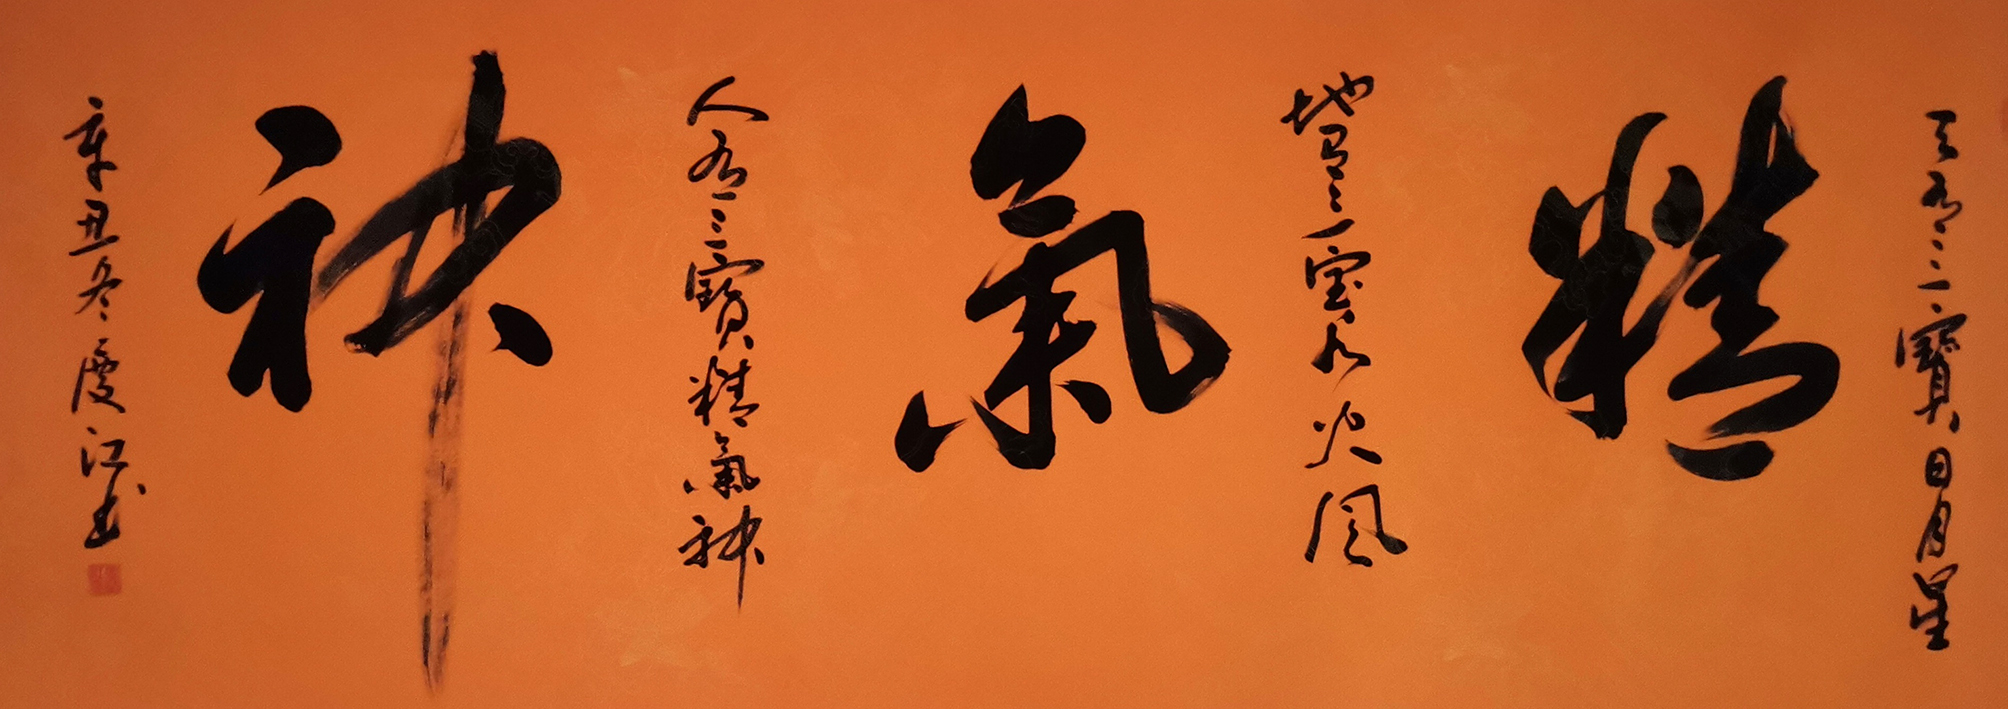 天有三寶日月星
精
地有三宝水火風
氣
人有三寶精氣神
神
辛丑冬慶江書